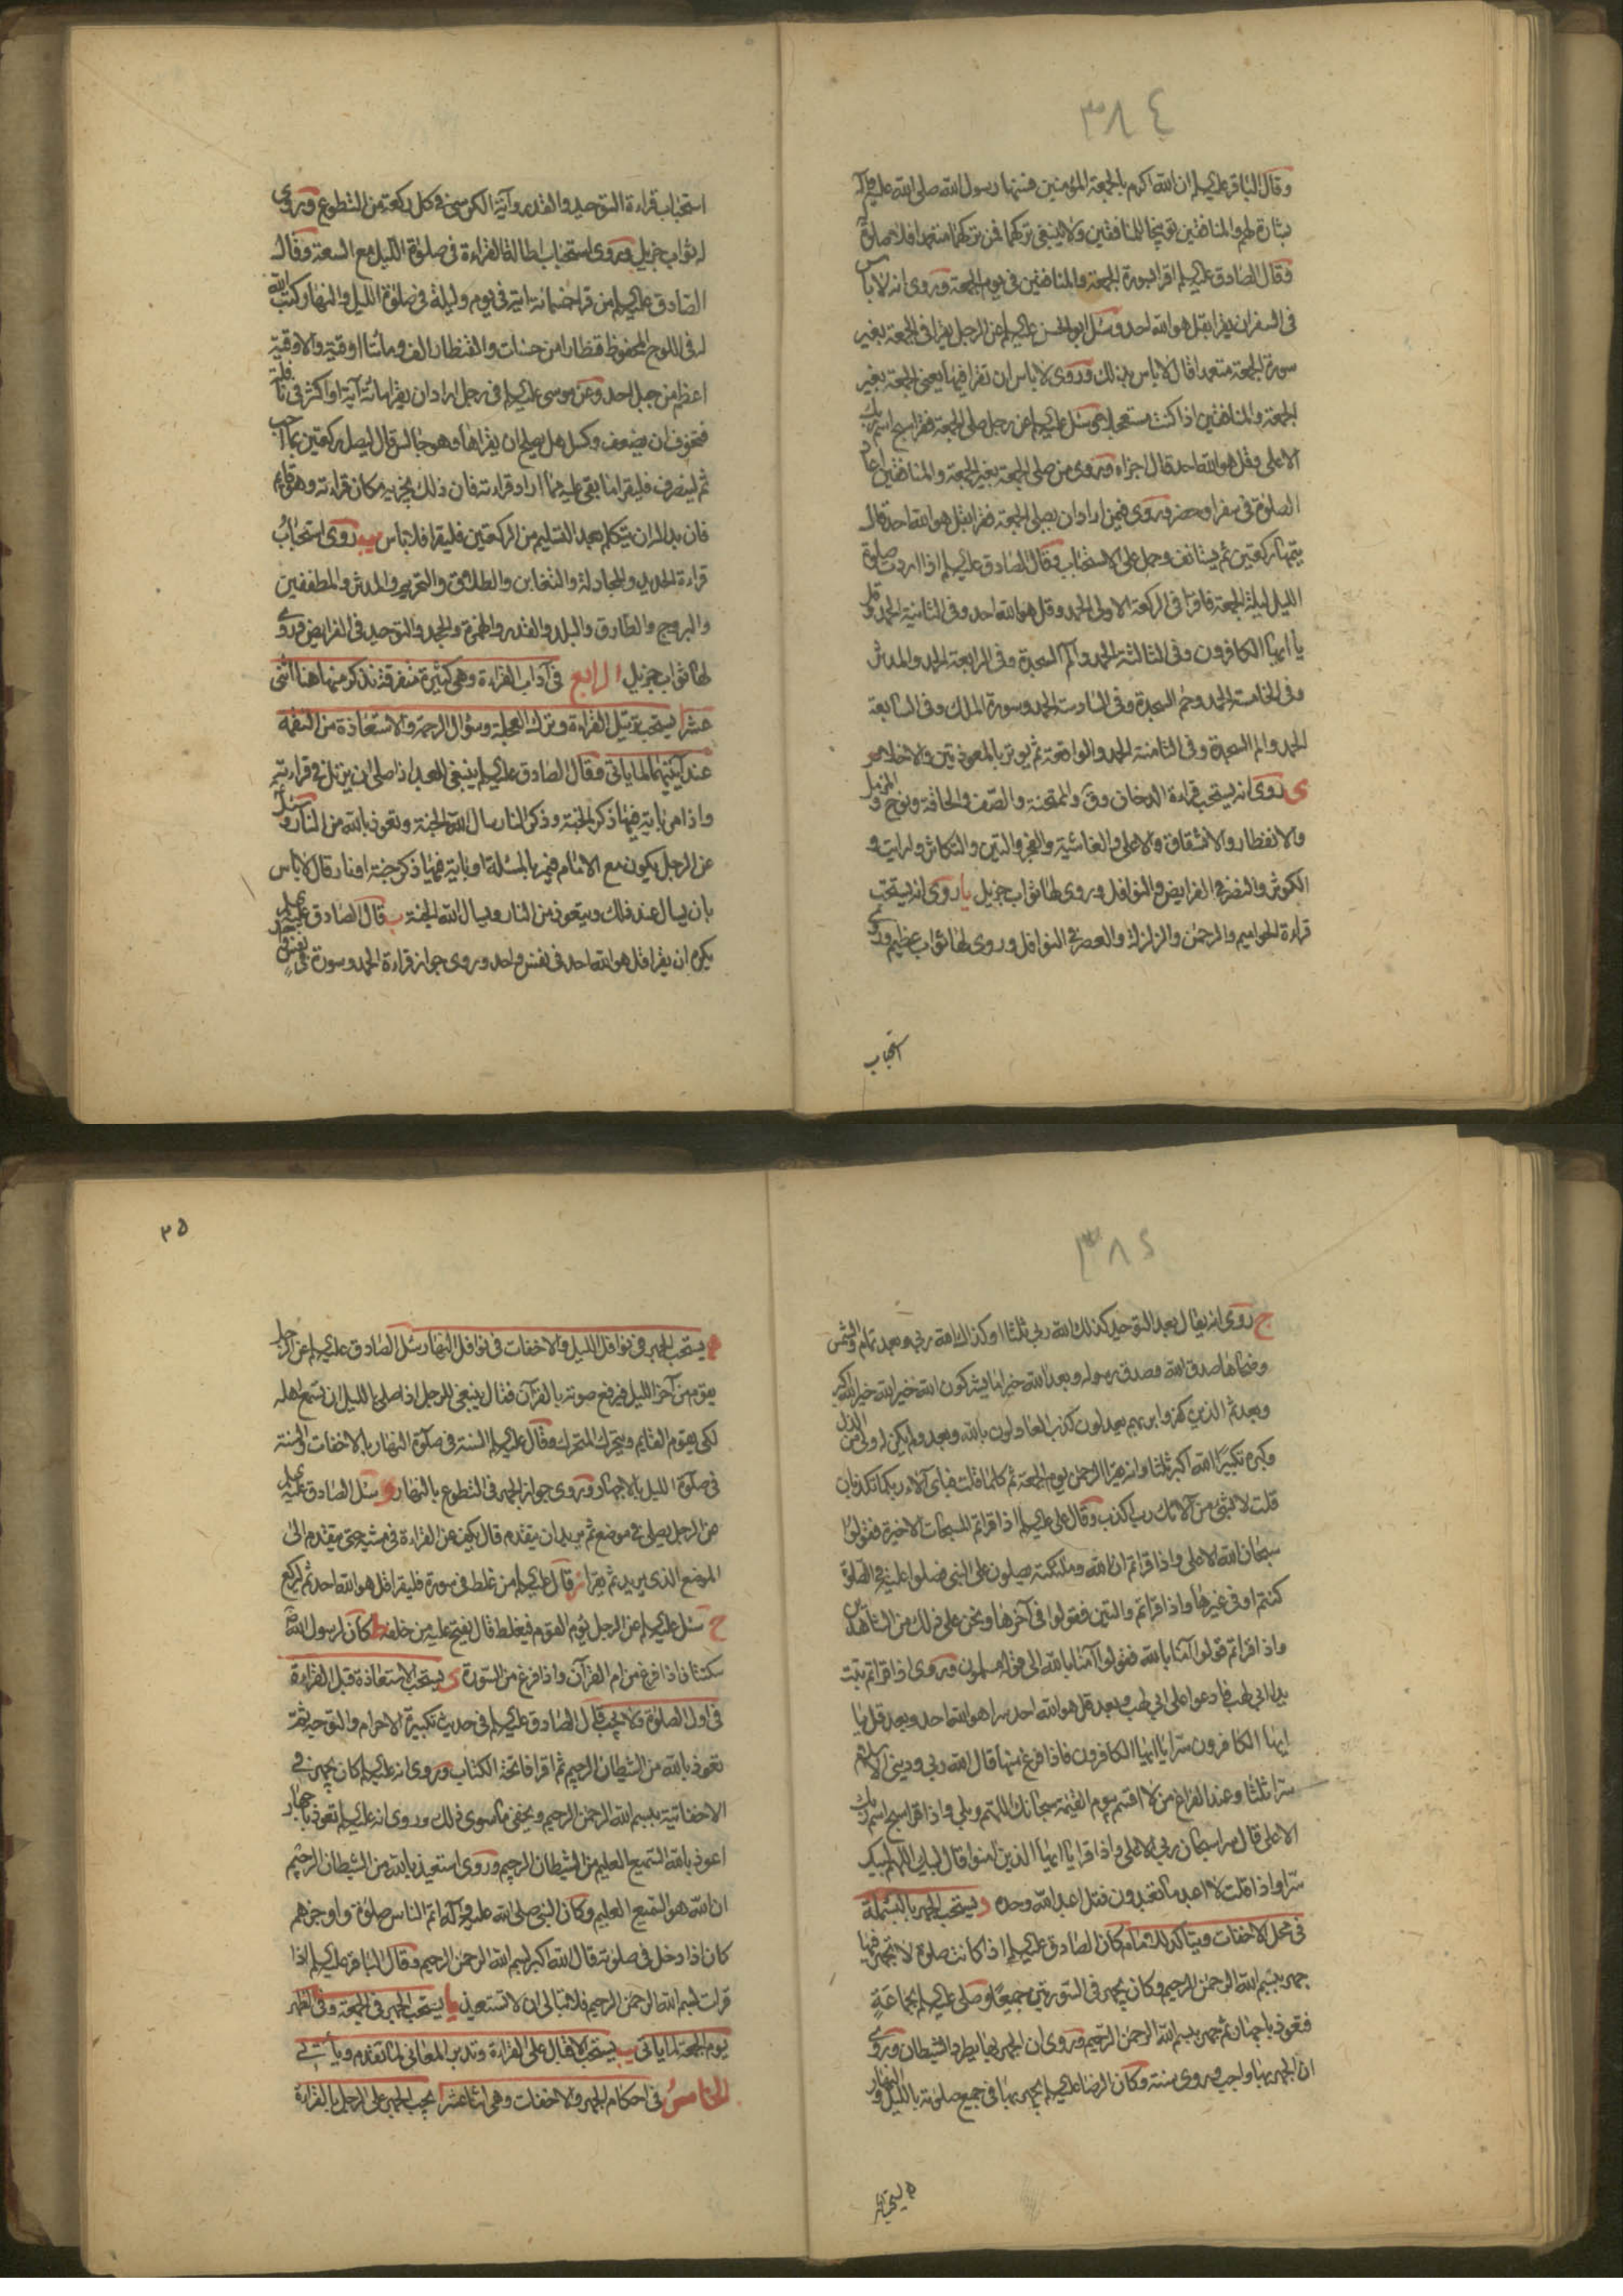 ٣٨٤
وقال الباقر عليه السلم ان الله اكرم بالجمعة المؤمنين فسنها رسول الله صلى الله عليه وآله
بشارة لهم والمنافقين توبيخا للمنافقين ولا ينبغي تركهما فمن تركهما متعمدا فلا صلوة له
وقال الصادق عليه السلم اقرا بسورة الجمعة والمنافقين في يوم الجمعة وروى انه لا باس
في السفر ان يقرا بقل هو الله احد وسئل ابو الحسن عليه السلم عن الرجل يقرا في الجمعة بغير
سورة الجمعة متعمدا قال لا باس بذلك وروى لا باس ان تقرا فيها يعنى الجمعة بغير
الجمعة والمنافقين اذا كنت مستعجلا وسئل عليه السلم عن رجل صلى الجمعة فقرا سبح اسم ربك
الاعلى وقل هو الله احد قال اجزاه وروى من صلى الجمعة بغير الجمعة والمنافقين اعاد
الصلوة في سفر او حضر وروى فيمن اراد ان يصلى الجمعة فقرا بقل هو الله احد قال
يتمها ركعتين ثم يستانف وحمل على الاستحباب وقال الصادق عليه السلم اذا اردت صلوة
الليل ليلة الجمعة فاقرا في الركعة الاولى الحمد وقل هو الله احد وفي الثانية الحمد وقل
يا ايها الكافرون وفي الثالثة الحمد والم السجدة وفي الرابعة الحمد والمدثر
وفي الخامسة الحمد وحم السجدة وفي السادسة الحمد وسورة الملك وفي السابعة
الحمد والم السجدة وفي الثامنة الحمد والواقعة ثم يوتر بالمعوذتين والاخلاص
ى روى انه يستحب قراءة الدخان وق والممتحنة والصف والحاقة ونوح والمزمل
والانفطار والانشقاق والاعلى والغاشية والفجر والتين والتكاثر وارايت و
الكوثر والنصر في الفرايض والنوافل وروى لها ثواب جزيل يا روى انه يستحب
قراءة الحواميم والرحمن والزلزلة والعصر في النوافل وروى لها ثواب عظيم وروى
استحباب
استحباب قراءة التوحيد والقدر وآية الكرسي في كل ركعة من التطوع وروى
له ثواب جزيل وروى استحباب اطالة القراءة في صلوة الليل مع السعة وقال
الصادق عليه السلم من قرا خمسمائة اية في يوم وليلة في صلوة الليل والنهار كتب الله
له في اللوح المحفوظ قنطارا من حسنات والقنطار الف ومائتا اوقية والاوقية
اعظم من جبل احد وعن موسى عليه السلم في رجل اراد ان يقرا مائة آية او اكثر في نافلة
فتخوف ان يضعف وكسل هل يصلح ان يقراها وهو جالس قال ليصل ركعتين بما احب
ثم لينصرف فليقرا ما بقي عليه مما اراد قراءته فان ذلك يجزيه مكان قراءته وهو قائم
فان بدا له ان يتكلم بعد التسليم من الركعتين فليقرا فلا باس يب روى استحباب
قراءة الحديد والمجادلة والتغابن والطلاق والتحريم والمدثر والمطففين
والبروج والطارق والبلد والقدر والهمزة والجحد والتوحيد في الفرايض وروى
لها ثواب جزيل الرابع في آداب القراءة وهي كثيرة متفرقة نذكر منها هنا اثنى
عشر ا يستحب ترتيل القراءة وترك العجلة وسؤال الرحمة والاستعاذة من النقمة
عند آيتيهما لما ياتى وقال الصادق عليه السلم ينبغي للعبد اذا صلى ان يرتل في قراءته
واذا مر باية فيها ذكر الجنة وذكر النار سال الله الجنة وتعوذ بالله من النار وسئل
عن الرجل يكون مع الامام فيمر بالمسئلة او باية فيها ذكر جنة او نار قال لا باس
بان يسال عند ذلك ويتعوذ من النار ويسال الله الجنة ب قال الصادق عليه السلم
يكره ان يقرا قل هو الله احد في نفس واحد وروى جواز قراءة الحمد وسورة في نفس واحد
٣٨٥
ج روى انه يقال بعد التوحيد كذلك الله ربي ثلثا او كذلك الله ربي وبعد تمام والشمس
وضحاها صدق الله وصدق رسوله وبعد الله خير اما يشركون الله خير الله خير الله اكبر
وبعد ثم الذين كفروا بربهم يعدلون كذب العادلون بالله وبعد ولم يكن له ولى من الذل
وكبره تكبيرا الله اكبر ثلثا وانه يقرا الرحمن يوم الجمعة ثم كلما قلت فباى آلاء ربكما تكذبان
قلت لا بشيء من آلائك رب اكذب وقال على عليه السلم اذا قراتم المسبحات الاخيرة فقولوا
سبحان الله الاعلى واذا قراتم ان الله وملئكته يصلون على النبي فصلوا عليه في الصلوة
كنتم او في غيرها واذا قراتم والتين فقولوا في آخرها ونحن على ذلك من الشاهدين
واذا قراتم قولوا آمنا بالله فقولوا آمنا بالله الى قوله مسلمون وروى اذا قراتم تبت
يدا ابى لهب فادعوا على ابى لهب وبعد قل هو الله احد سرا هو الله احد وبعد قل يا
ايها الكافرون سرا يا ايها الكافرون فاذا فرغ منها قال الله ربي وديني الاسلام
سرا ثلثا وعند الفراغ من لا اقسم بيوم القيمة سبحانك اللهم وبلى واذا قرا سبح اسم ربك
الاعلى قال سرا سبحان ربي الاعلى واذا قرا يا ايها الذين امنوا قال لبيك اللهم لبيك
سرا واذا قلت لا اعبد ما تعبدون فقل اعبد الله وحده د يستحب الجهر بالبسملة
في محل الاخفات ويتاكد للامام كان الصادق عليه السلم اذا كانت صلوة لا تجهر فيها
جهر ببسم الله الرحمن الرحيم وكان يجهر في السورتين جميعا وصلى عليه السلم بجماعة
فتعوذ باجهار ثم جهر ببسم الله الرحمن الرحيم وروى ان الجهر بها يطرد الشيطان وروى
ان الجهر بها واجب وروى سنة وكان الرضا عليه السلم يجهر بها في جميع صلوته بالليل والنهار
ه يستحب
٣٥
ه يستحب الجهر في نوافل الليل والاخفات في نوافل النهار سئل الصادق عليه السلم عن الرجل
يقوم من آخر الليل فيرفع صوته بالقرآن فقال ينبغي للرجل اذا صلى بالليل ان يسمع اهله
لكي يقوم القايم ويتحرك المتحرك وقال عليه السلم السنة في صلوة النهار بالاخفات والسنة
في صلوة الليل بالاجهار وروى جواز الجهر في التطوع بالنهار و سئل الصادق عليه السلم
عن الرجل يصلى في موضع ثم يريد ان يتقدم قال يكف عن القراءة في مشيه حتى يتقدم الى
الموضع الذى يريد ثم يقرا ز قال عليه السلم من غلط في سورة فليقرا قل هو الله احد ثم ليركع
ح سئل عليه السلم عن الرجل يؤم القوم فيغلط قال يفتح عليه من خلفه ط كان لرسول الله ص
سكتتان اذا فرغ من ام القرآن واذا فرغ من السورة ى يستحب الاستعاذة قبل القراءة
في اول الصلوة ولا يجب قال الصادق عليه السلم في حديث تكبيرة الاحرام والتوجه ثم
تعوذ بالله من الشيطان الرجيم ثم اقرا فاتحة الكتاب وروى انه عليه السلم كان يجهر في
الاخفاتية ببسم الله الرحمن الرحيم ويخفي ما سوى ذلك وروى انه عليه السلم تعوذ باجهار
اعوذ بالله السميع العليم من الشيطان الرجيم وروى استعيذ بالله من الشيطان الرجيم
ان الله هو السميع العليم وكان النبي صلى الله عليه وآله اتم الناس صلوة واوجزهم
كان اذا دخل في صلوته قال الله اكبر بسم الله الرحمن الرحيم وقال الباقر عليه السلم اذا
قرات بسم الله الرحمن الرحيم فلا تبالي ان لا تستعيذ يا يستحب الجهر في الجمعة وفي الظهر
يوم الجمعة لما ياتى يب يستحب الاقبال على القراءة وتدبر المعاني لما تقدم وياتى
الخامس في احكام الجهر والاخفات وهي اثنا عشر ا يجب الجهر على الرجل بالقراءة